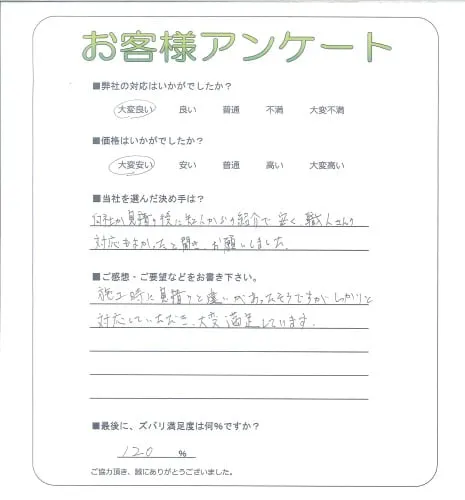 お客様アンケート
■弊社の対応はいかがでしたか？
大変良い 良い 普通 不満 大変不満
■価格はいかがでしたか？
大変安い 安い 普通 高い 大変高い
■当社を選んだ決め手は？
何社か見積り後に知人からの紹介で安く職人さんの
対応もよかったと聞き、お願いしました。
■ご感想・ご要望などをお書き下さい。
施工時に見積りと違いがあったそうですがしっかりと
対応していただき、大変満足しています。
■最後に、ズバリ満足度は何％ですか？
120 %
ご協力頂き、誠にありがとうございました。